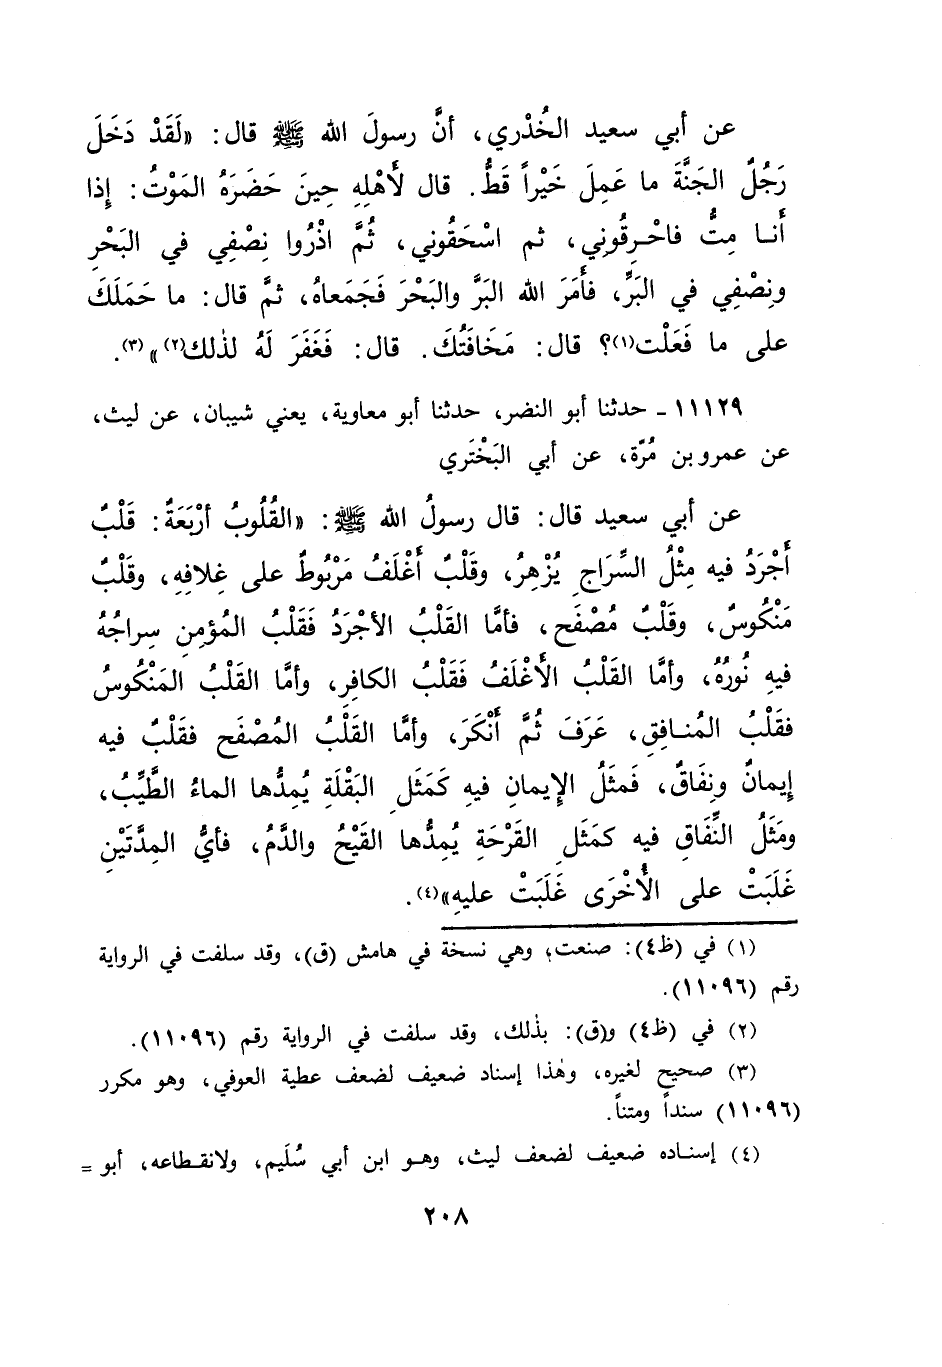 عن أبي سعيد الخُدْري، أنَّ رسولَ الله ﷺ قال: «لَقَدْ دَخَلَ
رَجُلٌ الجَنَّةَ ما عَمِلَ خَيْراً قَطُّ. قال لأَهْلِهِ حِينَ حَضَرَهُ المَوْتُ: إِذا
أَنا مِتُّ فاحْرِقُوني، ثم اسْحَقُوني، ثُمَّ اذْرُوا نِصْفِي في البَحْرِ
ونِصْفِي في البَرِّ، فأَمَرَ الله البَرَّ والبَحْرَ فَجَمَعاهُ، ثمَّ قال: ما حَمَلَكَ
على ما فَعَلْت(١)؟ قال: مَخَافَتُكَ. قال: فَغَفَرَ لَهُ لذٰلك(٢)»(٣).
١١١٢٩ - حدثنا أبو النضر، حدثنا أبو معاوية، يعني شيبان، عن ليث،
عن عمرو بن مُرّة، عن أبي البَخْتَري
عن أبي سعيد قال: قال رسولُ الله ﷺ: «القُلُوبُ أرْبَعَةٌ: قَلْبٌ
أَجْرَدُ فيه مِثْلُ السِّراجِ يُزْهِرُ، وقَلْبٌ أَغْلَفُ مَرْبُوطٌ على غِلافِهِ، وقَلْبٌ
مَنْكُوسٌ، وقَلْبٌ مُصْفَح، فأمَّا القَلْبُ الأجْرَدُ فَقَلْبُ المُؤمِنِ سِراجُهُ
فيهِ نُورُهُ، وأمَّا القَلْبُ الأَغْلَفُ فَقَلْبُ الكافِرِ، وأمَّا القَلْبُ المَنْكُوسُ
فقَلْبُ المُنافِقِ، عَرَفَ ثُمَّ أَنْكَرَ، وأمَّا القَلْبُ المُصْفَح فقَلْبٌ فيه
إيمانٌ ونِفَاقٌ، فَمثَلُ الإيمانِ فيهِ كَمَثَلِ البَقْلَةِ يُمِدُّها الماءُ الطَّيِّبُ،
ومَثَلُ النِّفَاقِ فيه كمَثَلِ القَرْحَةِ يُمِدُّها القَيْحُ والدَّمُ، فأيُّ المِدَّتَيْنِ
غَلَبَتْ على الأُخْرَى غَلَبَتْ عليهِ»(٤).
(١) في (ظ٤): صنعت، وهي نسخة في هامش (ق)، وقد سلفت في الرواية
رقم (١١٠٩٦).
(٢) في (ظ٤) و(ق): بذٰلك، وقد سلفت في الرواية رقم (١١٠٩٦).
(٣) صحيح لغيره، وهٰذا إسناد ضعيف لضعف عطية العوفي، وهو مكرر
(١١٠٩٦) سنداً ومتناً.
(٤) إسناده ضعيف لضعف ليث، وهو ابن أبي سُلَيم، ولانقطاعه، أبو =
٢٠٨